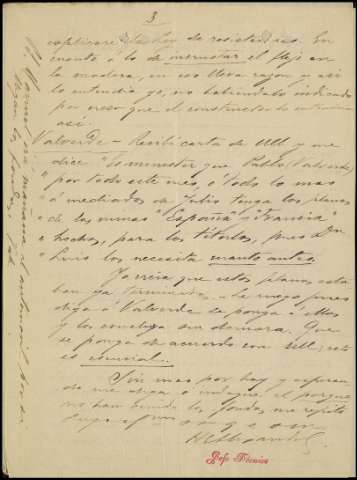 3
esplicaré la ley de resistencias. En
cuanto á lo de incrustar el fleje en
la madera, en eso lleva razon y así
lo entendia yo, no habiendolo indicado
por creer que el constructor lo entenderia
así
Valverde - Recibí carta de Ull y me
dice "Es menester que Pablo (Valverde)
"por todo este mes, ó todo lo mas
"á mediados de Julio tenga los planos
"de las minas "España" y "Francia"
"hechos, para los titulos, pues Don
"Luis los necesita cuanto antes
Yo creia que estos planos esta
ban ya terminados. Le ruego pues
diga á Valverde se ponga á ellos
y los concluya sin demora. Que
se ponga de acuerdo con Ull; esto
es esencial.
Sin mas por hoy y esperan
do me diga el porque
no han venido los fondos, me repito
suyo
Jefe Técnico